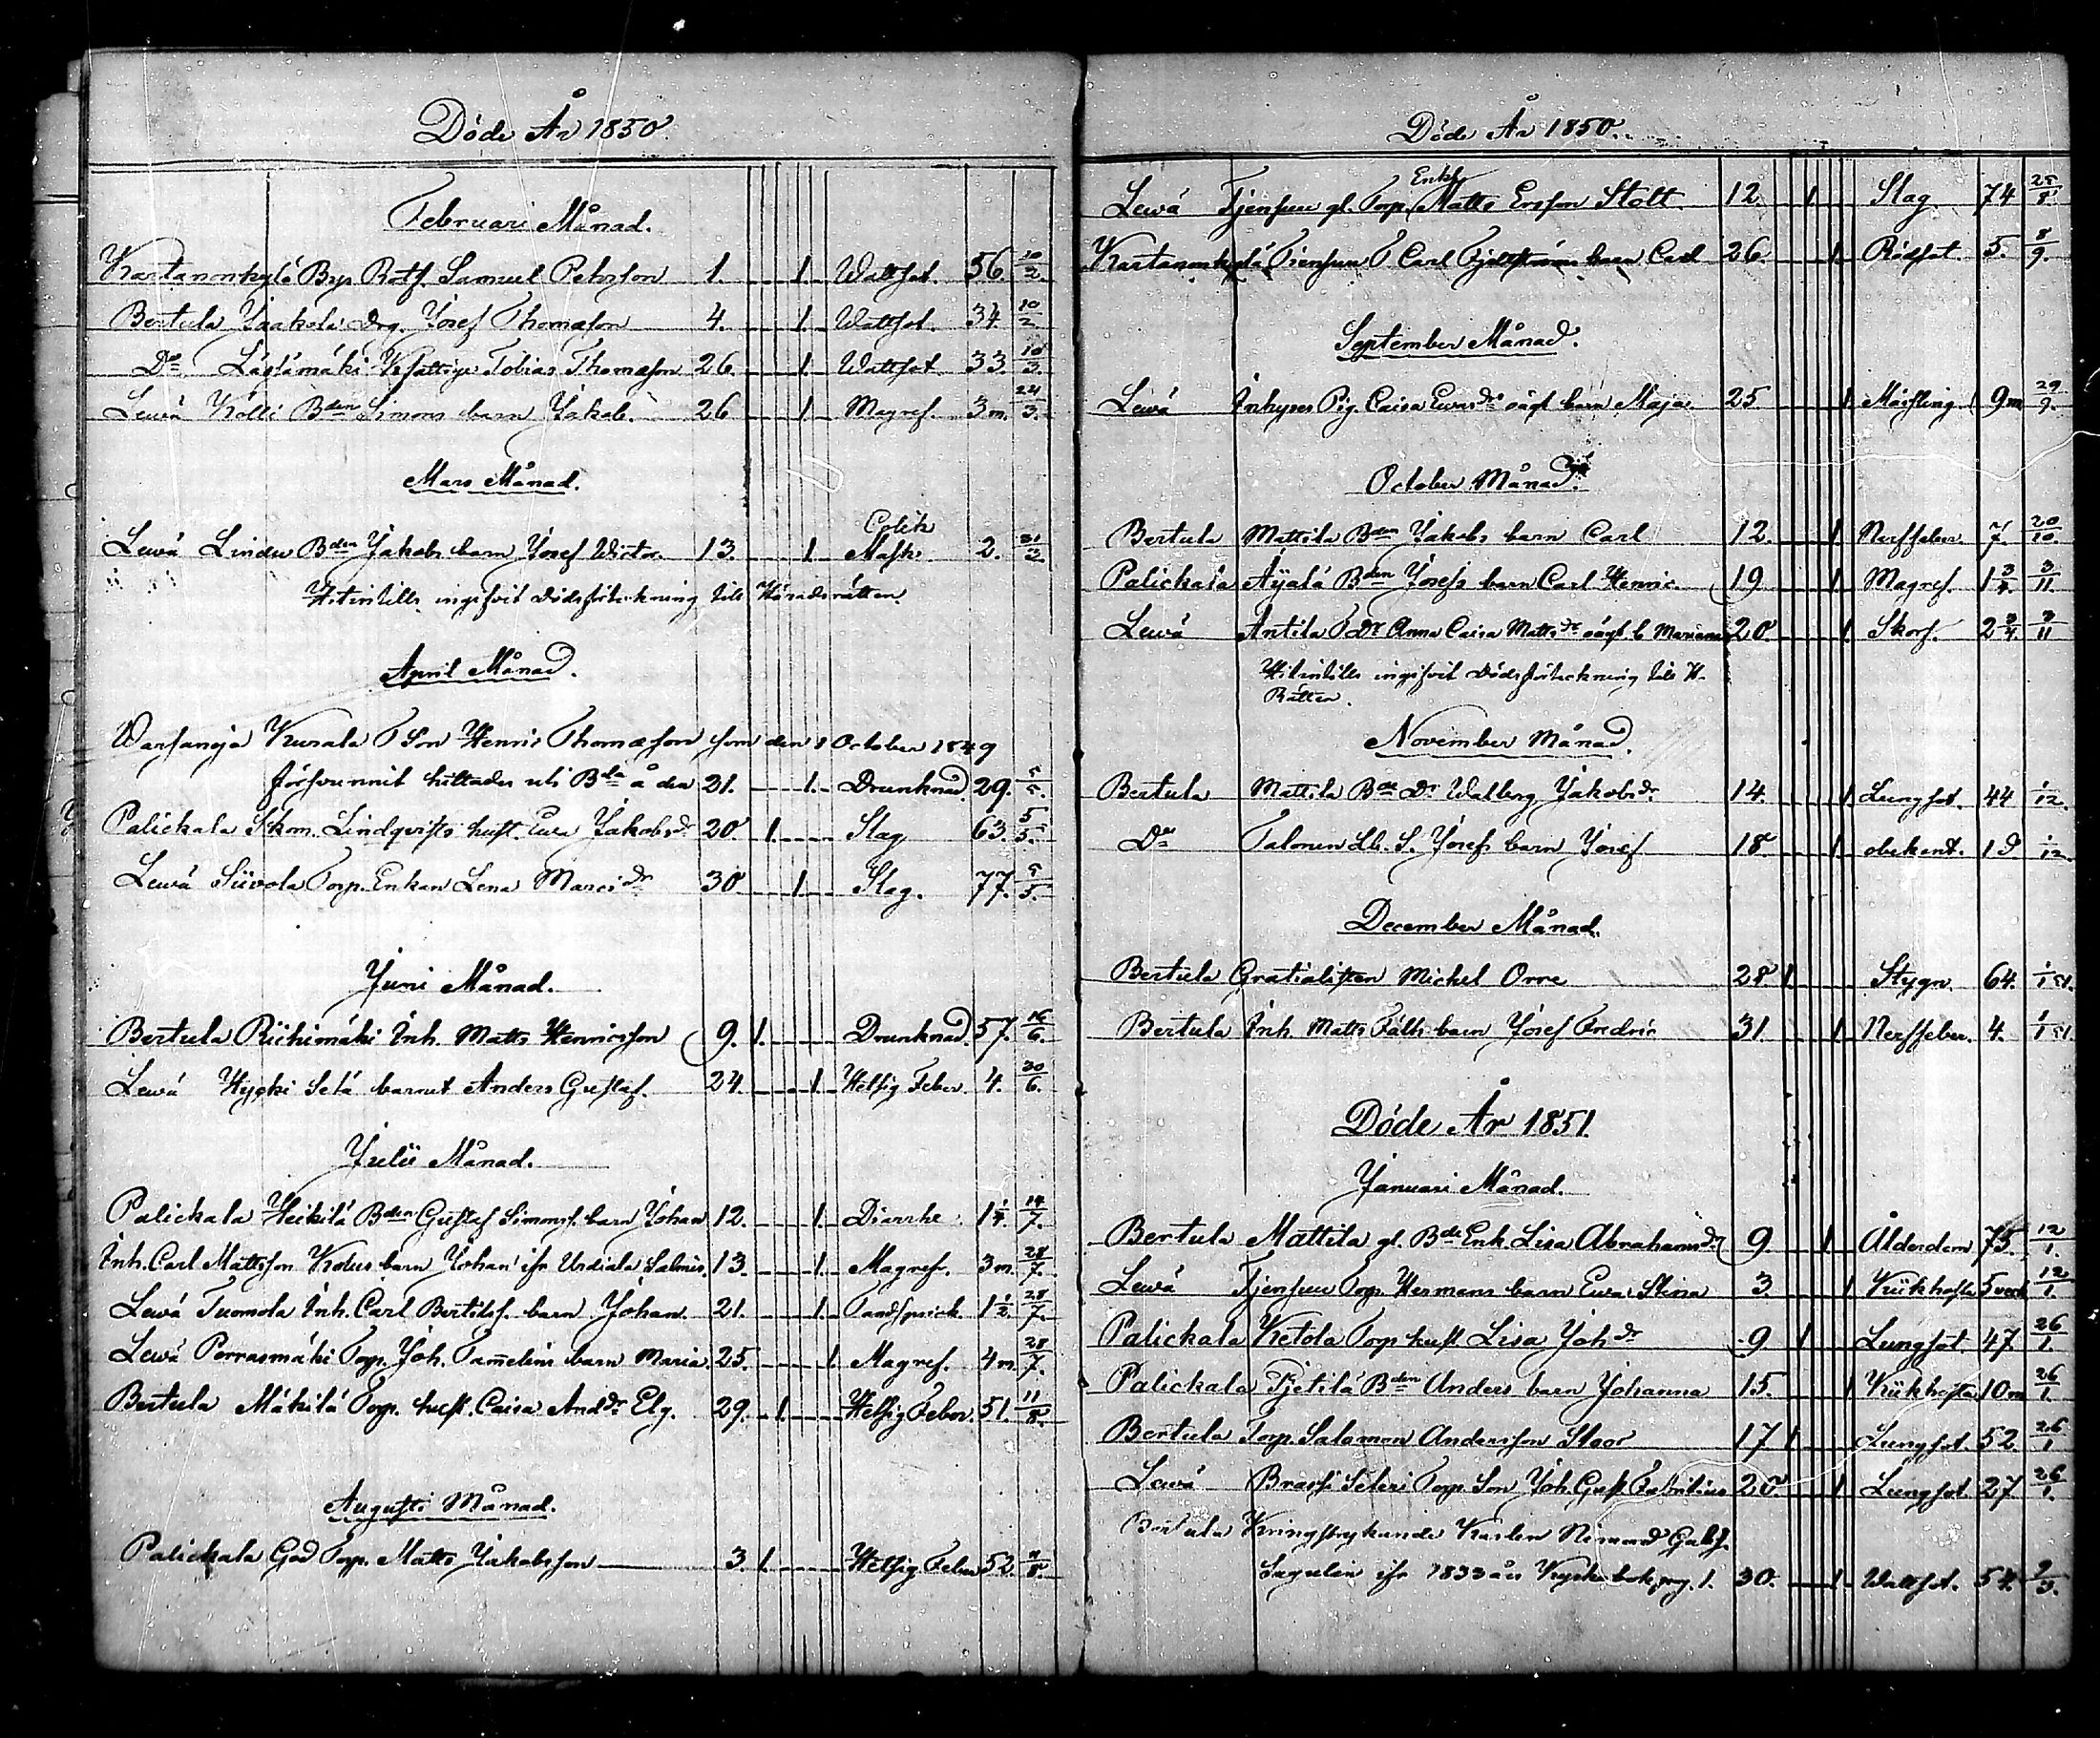 Döde År 1850.
Februari Månad.
Kartanonkylä Bys Rotf. Samuel Petersson 1. 1. Wattsot. 56. 10/2.
Bertula Jaakola Drg. Josef Thomasson 4. 1. Wattsot. 34 10/2
Do Läylämäki Josef Tobias Thomasson 26. 1. Wattsot. 33. 10/3.
Lewä Kölli Bden Simons barn Jakob. 26 1. Magref. 3 m. 24/3.
Mars Månad.
Colik
Lewä Lindu Bden Jakobs barn Josef Victor 13. 1. Mask. 2. 31/3.
Hitintills ingifvit Dödsförteckning till Häradsrätten.
April Månad.
Warsanoja Kurala T. Son Henric Thomasson som den 1 October 1849
försvunnit hittades uti å den 21. 1. Drunknad. 29. 5/5.
Palickala Skom. Lindqvists hust. Eva Jakobsdr 20. 1. Slag 63. 5/5.
Lewä Siivola Torp. Enkan Lena Marcidr 30 1. Slag. 77. 5/5.
Juni Månad.
Bertula Riihimäki Inh. Matts Henricsson 9. 1. Drunknad. 57. 16/6.
Lewä Hycki Setä barnet Anders Gustaf. 24. 1. Hetsig Feber. 4. 30/6.
Julii Månad.
Palickala Heikilä Bden Gustaf Simonss. barn Johan 12. 1. Diarrhe 1 1/4 14/7.
Inh. Carl Mattsson Kolus barn Johan ifr Urdiala Salmis. 13. 1. Magref. 3 m. 28/7.
Lewä Tuomola Inh. Carl Bertilss. barn Johan. 21. 1. Tandsprick. 1 1/2. 28/7.
Lewä Porrasmäki Torp. Joh. Tamelins barn Maria. 25. 1. Magref. 4 m. 28/7.
Bertula Mäkilä Torp. hust. Caisa Anddr Elg. 29. 1. Hetsig Feber. 51. 11/8.
Augusti Månad.
Palickala God Torp. Matts Jakobsson 3. 1. Hetsig Feber 52. 11/8.
Döde År 1850.
Enk.
Lewä Tjensuu gl. Torp. Matts Ersson Stolt. 12. 1. Slag. 74 25/8.
Kartanonkylä Tiensuu T. Carl barn Carl 26. 1. Rödsot. 5. 8/9.
September Månad.
Lewä Inhyses Pig. Caisa Ewasdr oägt barn Maja. 25 1. Mässling. 9 m 29/9.
October Månad.
Bertula Mattila Bden Jakobs barn Carl 12. 1. Nerffeber. 7. 20/10.
Palickala Äÿälä Bden Josefs barn Carl Henric. 19. 1. Magref. 1 3/4. 3/11.
Lewä Antila T. Dr Anna Caisa Mattsdr oägt b. Mariana 20. 1. Skorf. 2 3/4. 3/11
Hitintills ingifvit Dödsförteckning till H.
Rätten.
November Månad.
Bertula Mattila Bde Dr Walborg Jakobsdr. 14. 1. Lungsot. 44 1/12.
Do Talonen Lb. S. Josefs barn Josef 18. 1. obekant. 1 d 1/12.
December Månad.
Bertula Gratialisten Michel Orre 28. 1 Stygn 64. 1/1 51.
Bertula Inh. Matts Fälts barn Josef Fredric 31. 1 Nerffeber. 4. 1/1 51.
Döde År 1851.
Januari Månad.
Bertula Mattila gl. Bde Enk. Lisa Abrahamsdr 9. 1 Ålderdom 75. 12/1.
Lewä Tjensuu Torp. Hermans barn Ewa Stina 3 1 Kikhosta 5 veck 12/1.
Palickala Ketola Torp hust. Lisa Johdr 9 1 Lungsot. 47 26/1.
Palickala Pjetilä Bden Anders barn Johanna 15. 1. Kikhosta 10 m 26/1.
Bertula Torp. Salomon Andersson Stoor 17 1 Lungsot. 52. 26/1
Lewä Brasfi Seteri Torp. Son Joh. Gust. Fabritius 20. 1 Lungsot. 27 26/1.
Bertula Kringstrykande Karlen Nimrod Gabs.
Sagulin ifr 1833 års Kyrkobok pag. 1. 30. 1. Wattsot. 54. 2/3.